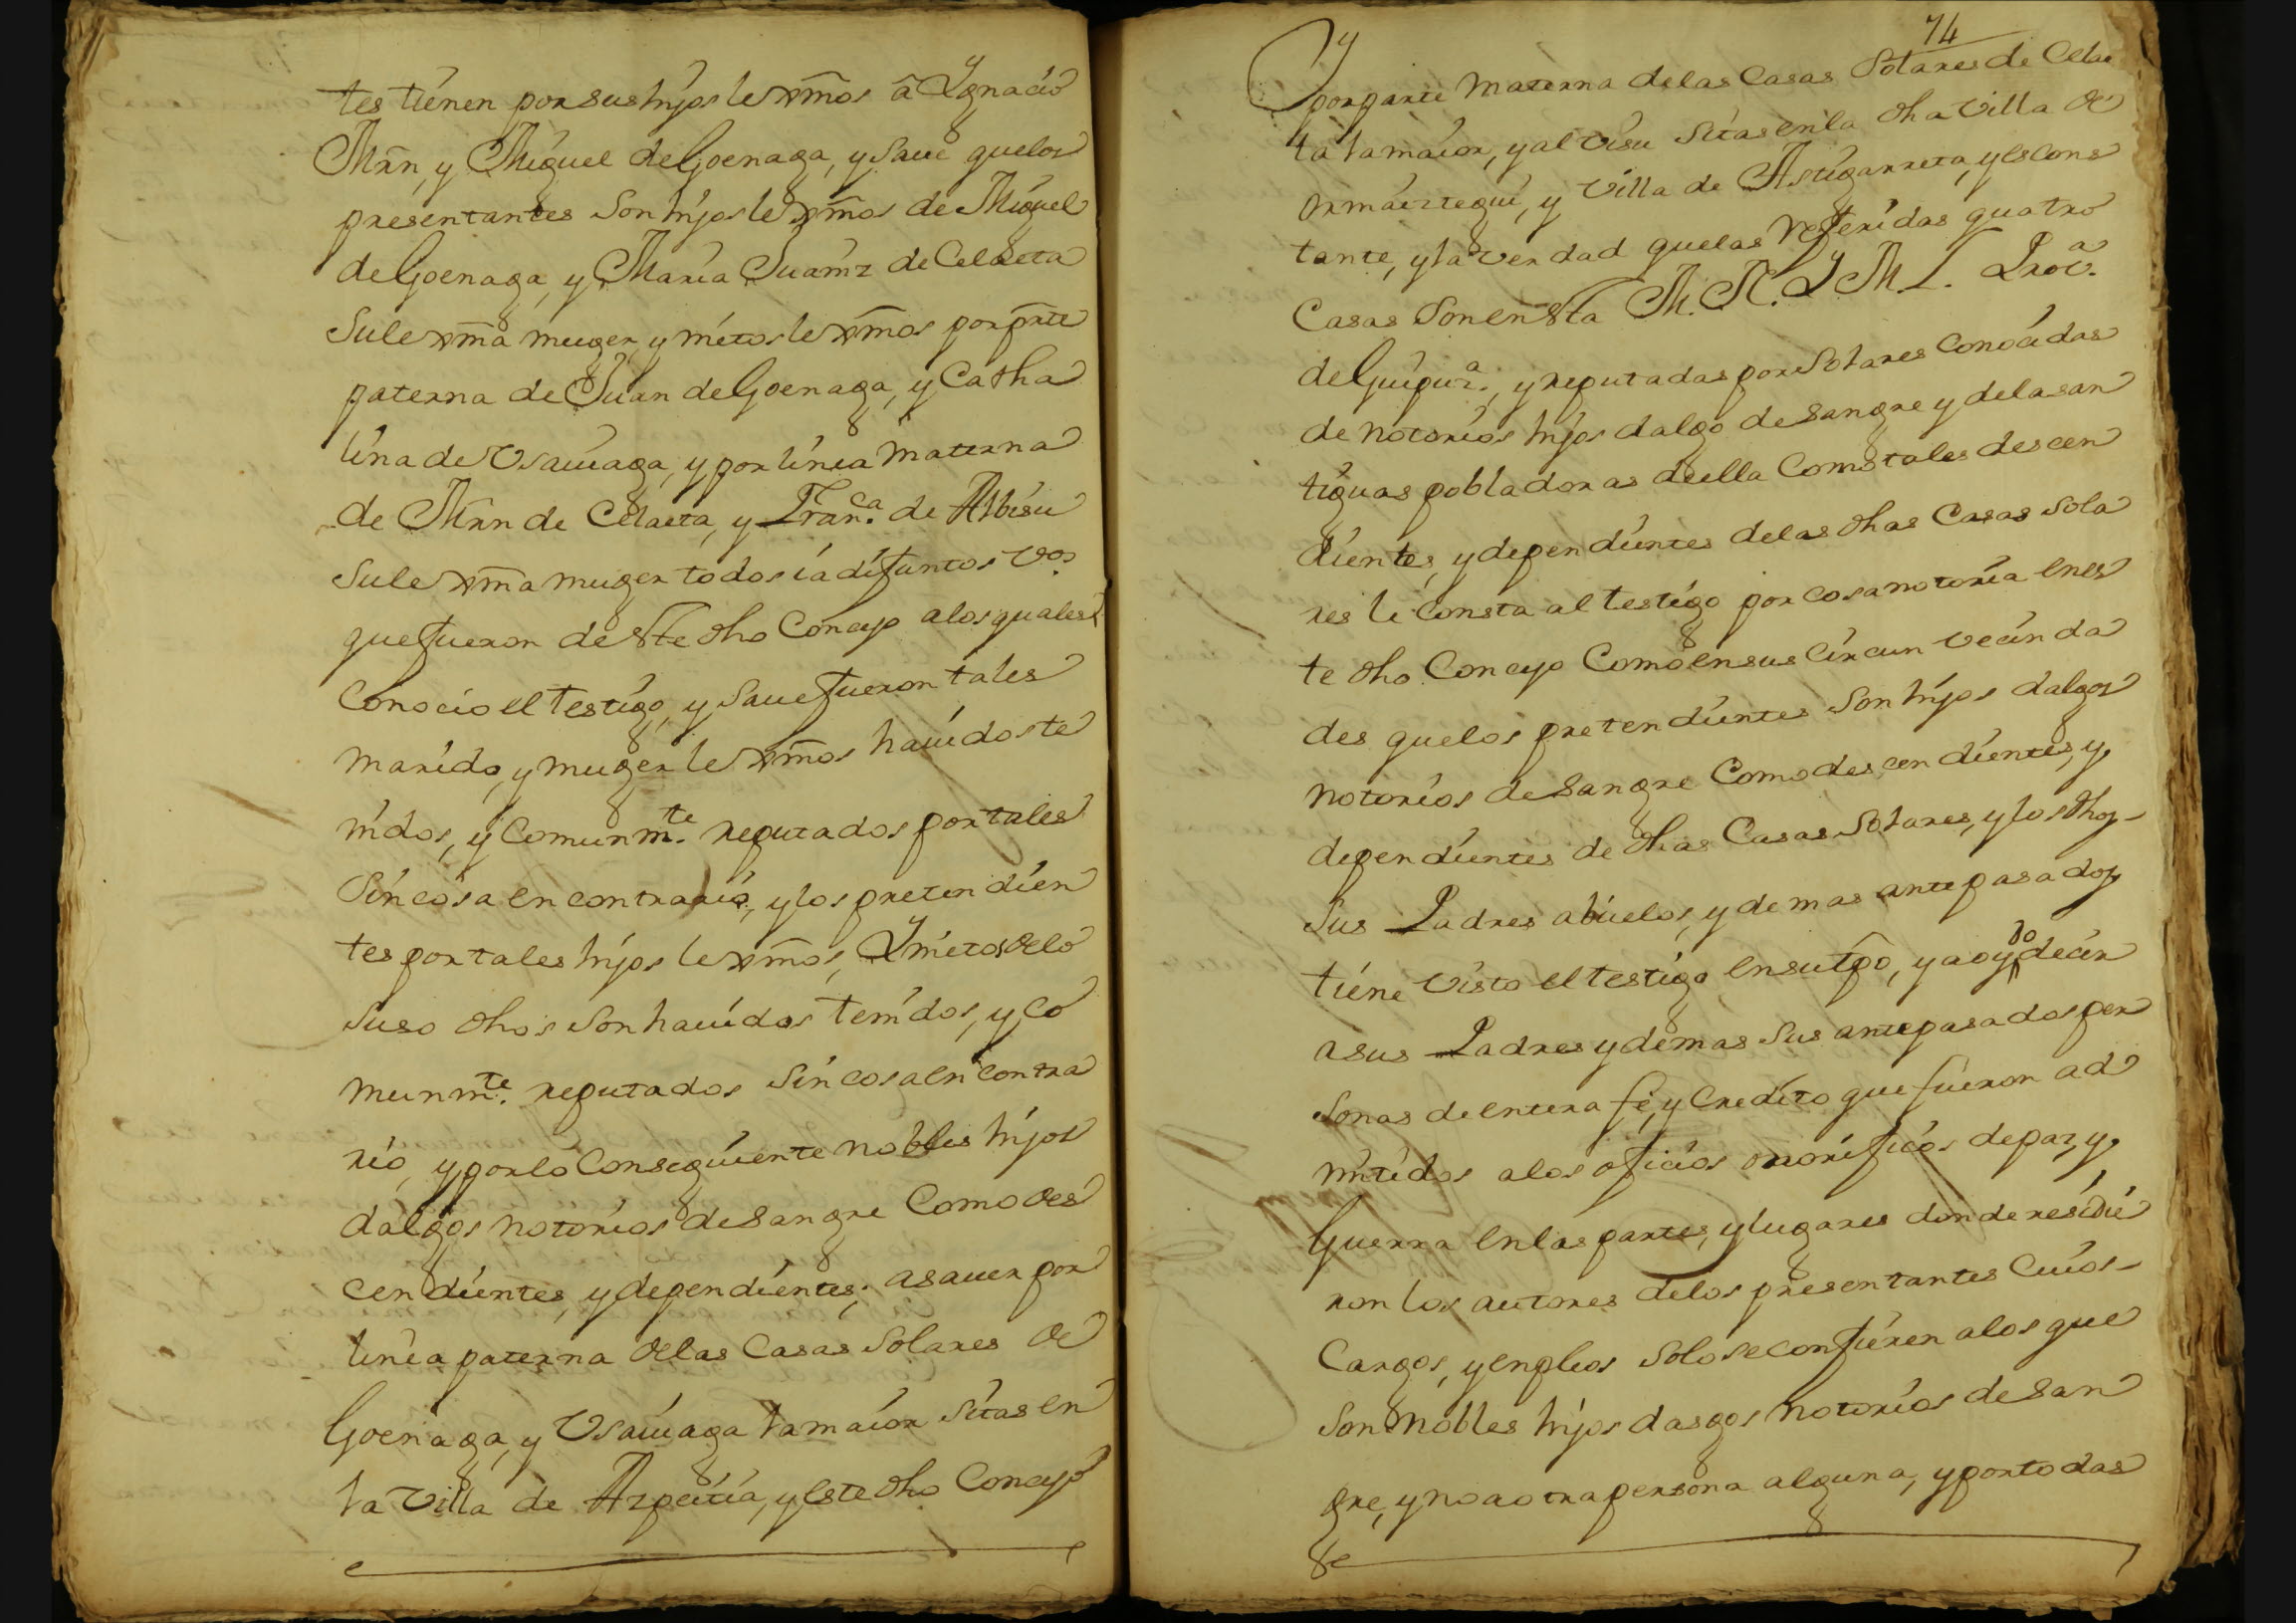 tes tienen por sus hijos lexmos â Ygnacio
Mrn, y Miguel de Goenaga, y save quelos
presentantes son hijos lexmos de Miguel
de Goenaga, y Maria Juamz de Celaeta
su lexma muger, y nietos lexmos por prte
paterna de Juan de Goenaga, y Catha
lina de Vsauiaga, y por linea Materna
de Mrn de Celaeta, y Franca. de Albisu
su lexma muger todos ia difuntos vos.
que fueron deste dho Concejo alos quales
Conocio el testigo, y save fueron tales
marido, y muger lexmos hauidos te
nidos, y Comunmte. reputados por tales
Sin cosa en contrario, y los pretendien
tes por tales hijos lexmos, Y nietos delo
suso dhos son hauidos tenidos, y co
munmte. reputados Sin cosa en contra
rio, y por lo Conseguiente nobles hijos
dalgos notorios de Sangre Como des
cendientes, y dependientes; asauer por
linea paterna delas Casas Solares de
Goenaga, y Vsauiaga la maior sitas en
la Villa de Azpeitia, y este dho Concejo
74
Y por parte Materna delas Casas Solares de Celae
ta la maior, y albisu sitas en la dha Villa de
Ormaiztegui, y Villa de Astigarreta, y es cons
tante, y la verdad quelas referidas quatro
Casas son ensta M. N. Y M. L. Prova.
de Guipuza., y reputadas por Solares Conocidas
de notorios hijos dalgo de sangre y delas an
tiguas pobladoras deella Como tales descen
dientes, y dependientes delas dhas Casas Sola
res le Consta al testigo por cosa notoria en es
te dho Concejo Como en sus circun vecinda
des quelos pretendientes son hijos dalgos
notorios de Sangre Como descendientes, y
dependientes de dhas Casas Solares, y los dhos
sus Padres abuelos, y demas antepasados
tiene visto el testigo en su tpo, y a oydo decir
a sus Padres y demas sus antepasados per
sonas de entera fe, y Credito que fueron ad
mitidos alos oficios onorificos de paz, y
Guerra en las partes, y lugares donde residie
ron los autores delos presentantes Cuios
Cargos, y enpleos Solo se confieren alos que
son nobles hijos dasgos notorios de San
gre, y no ao tra persona alguna, y por todas